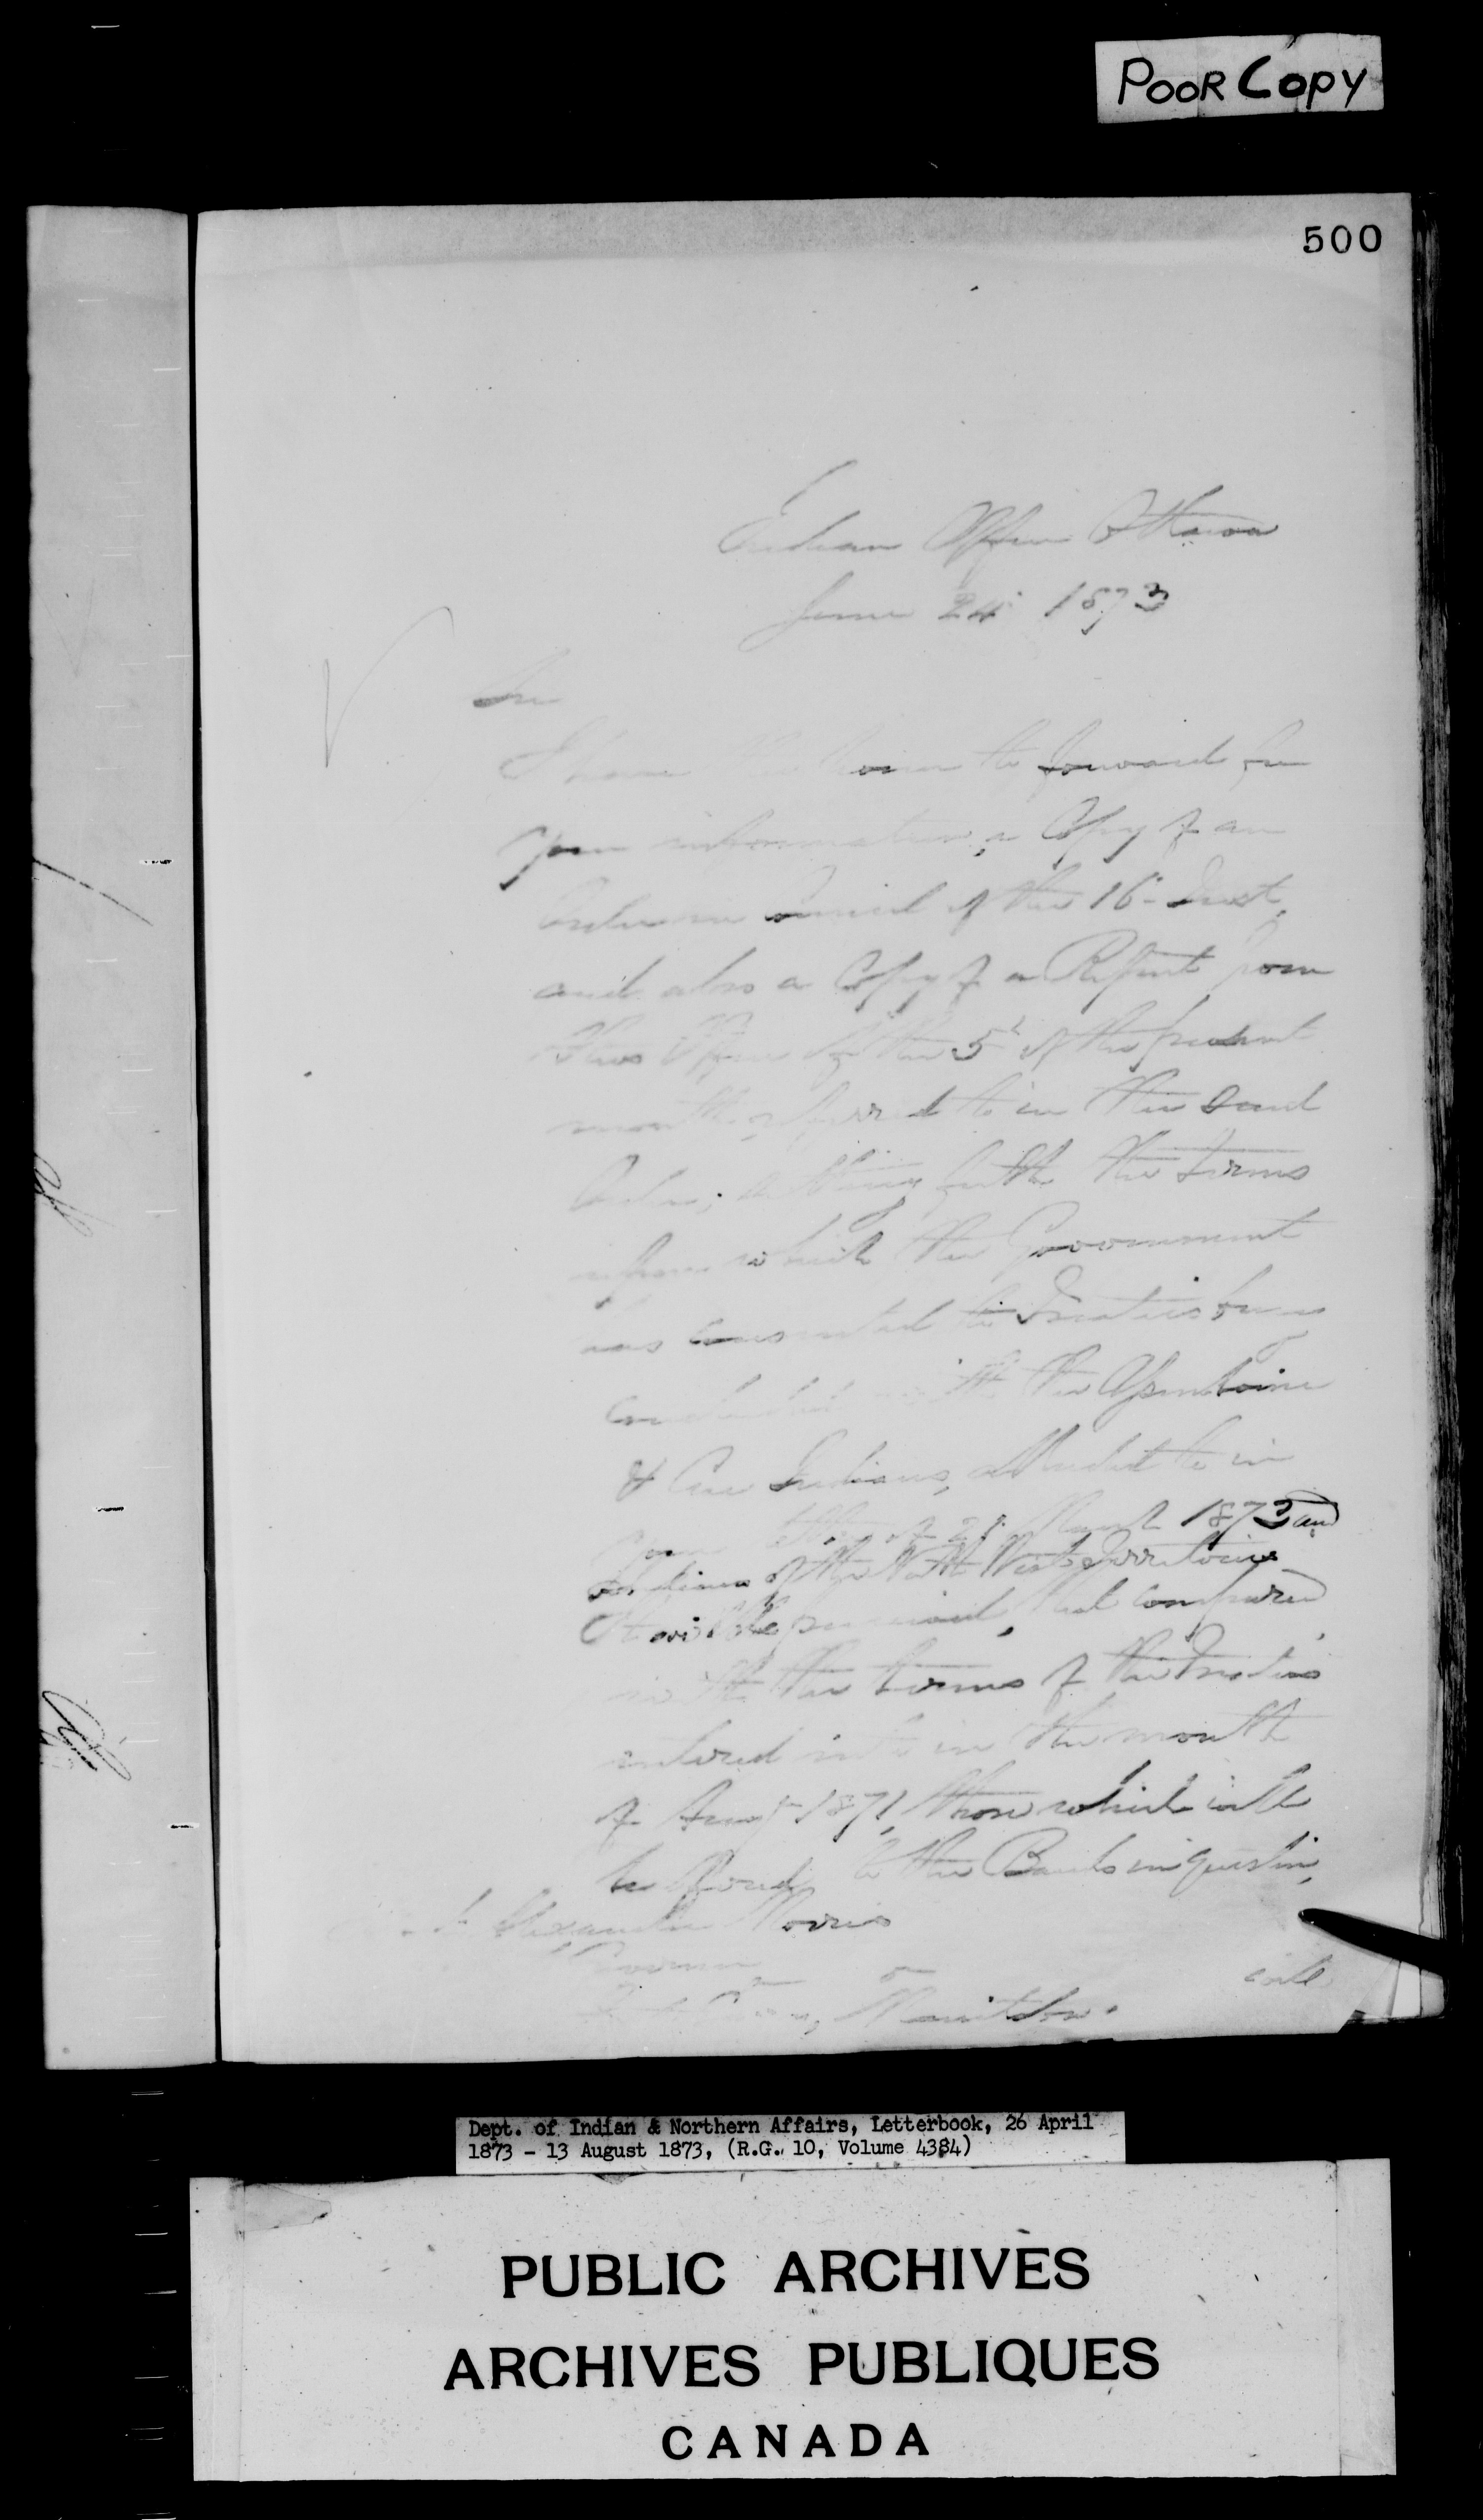 POOR COPY
500
Indian Office Ottawa
June 24 1873
Sir
I have the honor to forward for
your information, a Copy of an
Order in Council of the 16 Inst,
and also a Copy of a Report from
this Office of the 5 of the present
month, referred to in the said
Order, setting forth the terms
upon which the Government
has consented to Treaties being
concluded with the Assiniboine
& Cree Indians, alluded to in
your letter of 21 March 1873 and
Indians of the North West Territories
It will be perceived, that compared
with the terms of the Treaties
entered into in the month
of Augt 1871, those which will
be offered to the Bands in question,
Alexander Morris
Governor
Manitoba.
will
Dept. of Indian & Northern Affairs, Letterbook, 26 April
1873 - 13 August 1873, (R.G. 10, Volume 4384)
PUBLIC ARCHIVES
ARCHIVES PUBLIQUES
CANADA